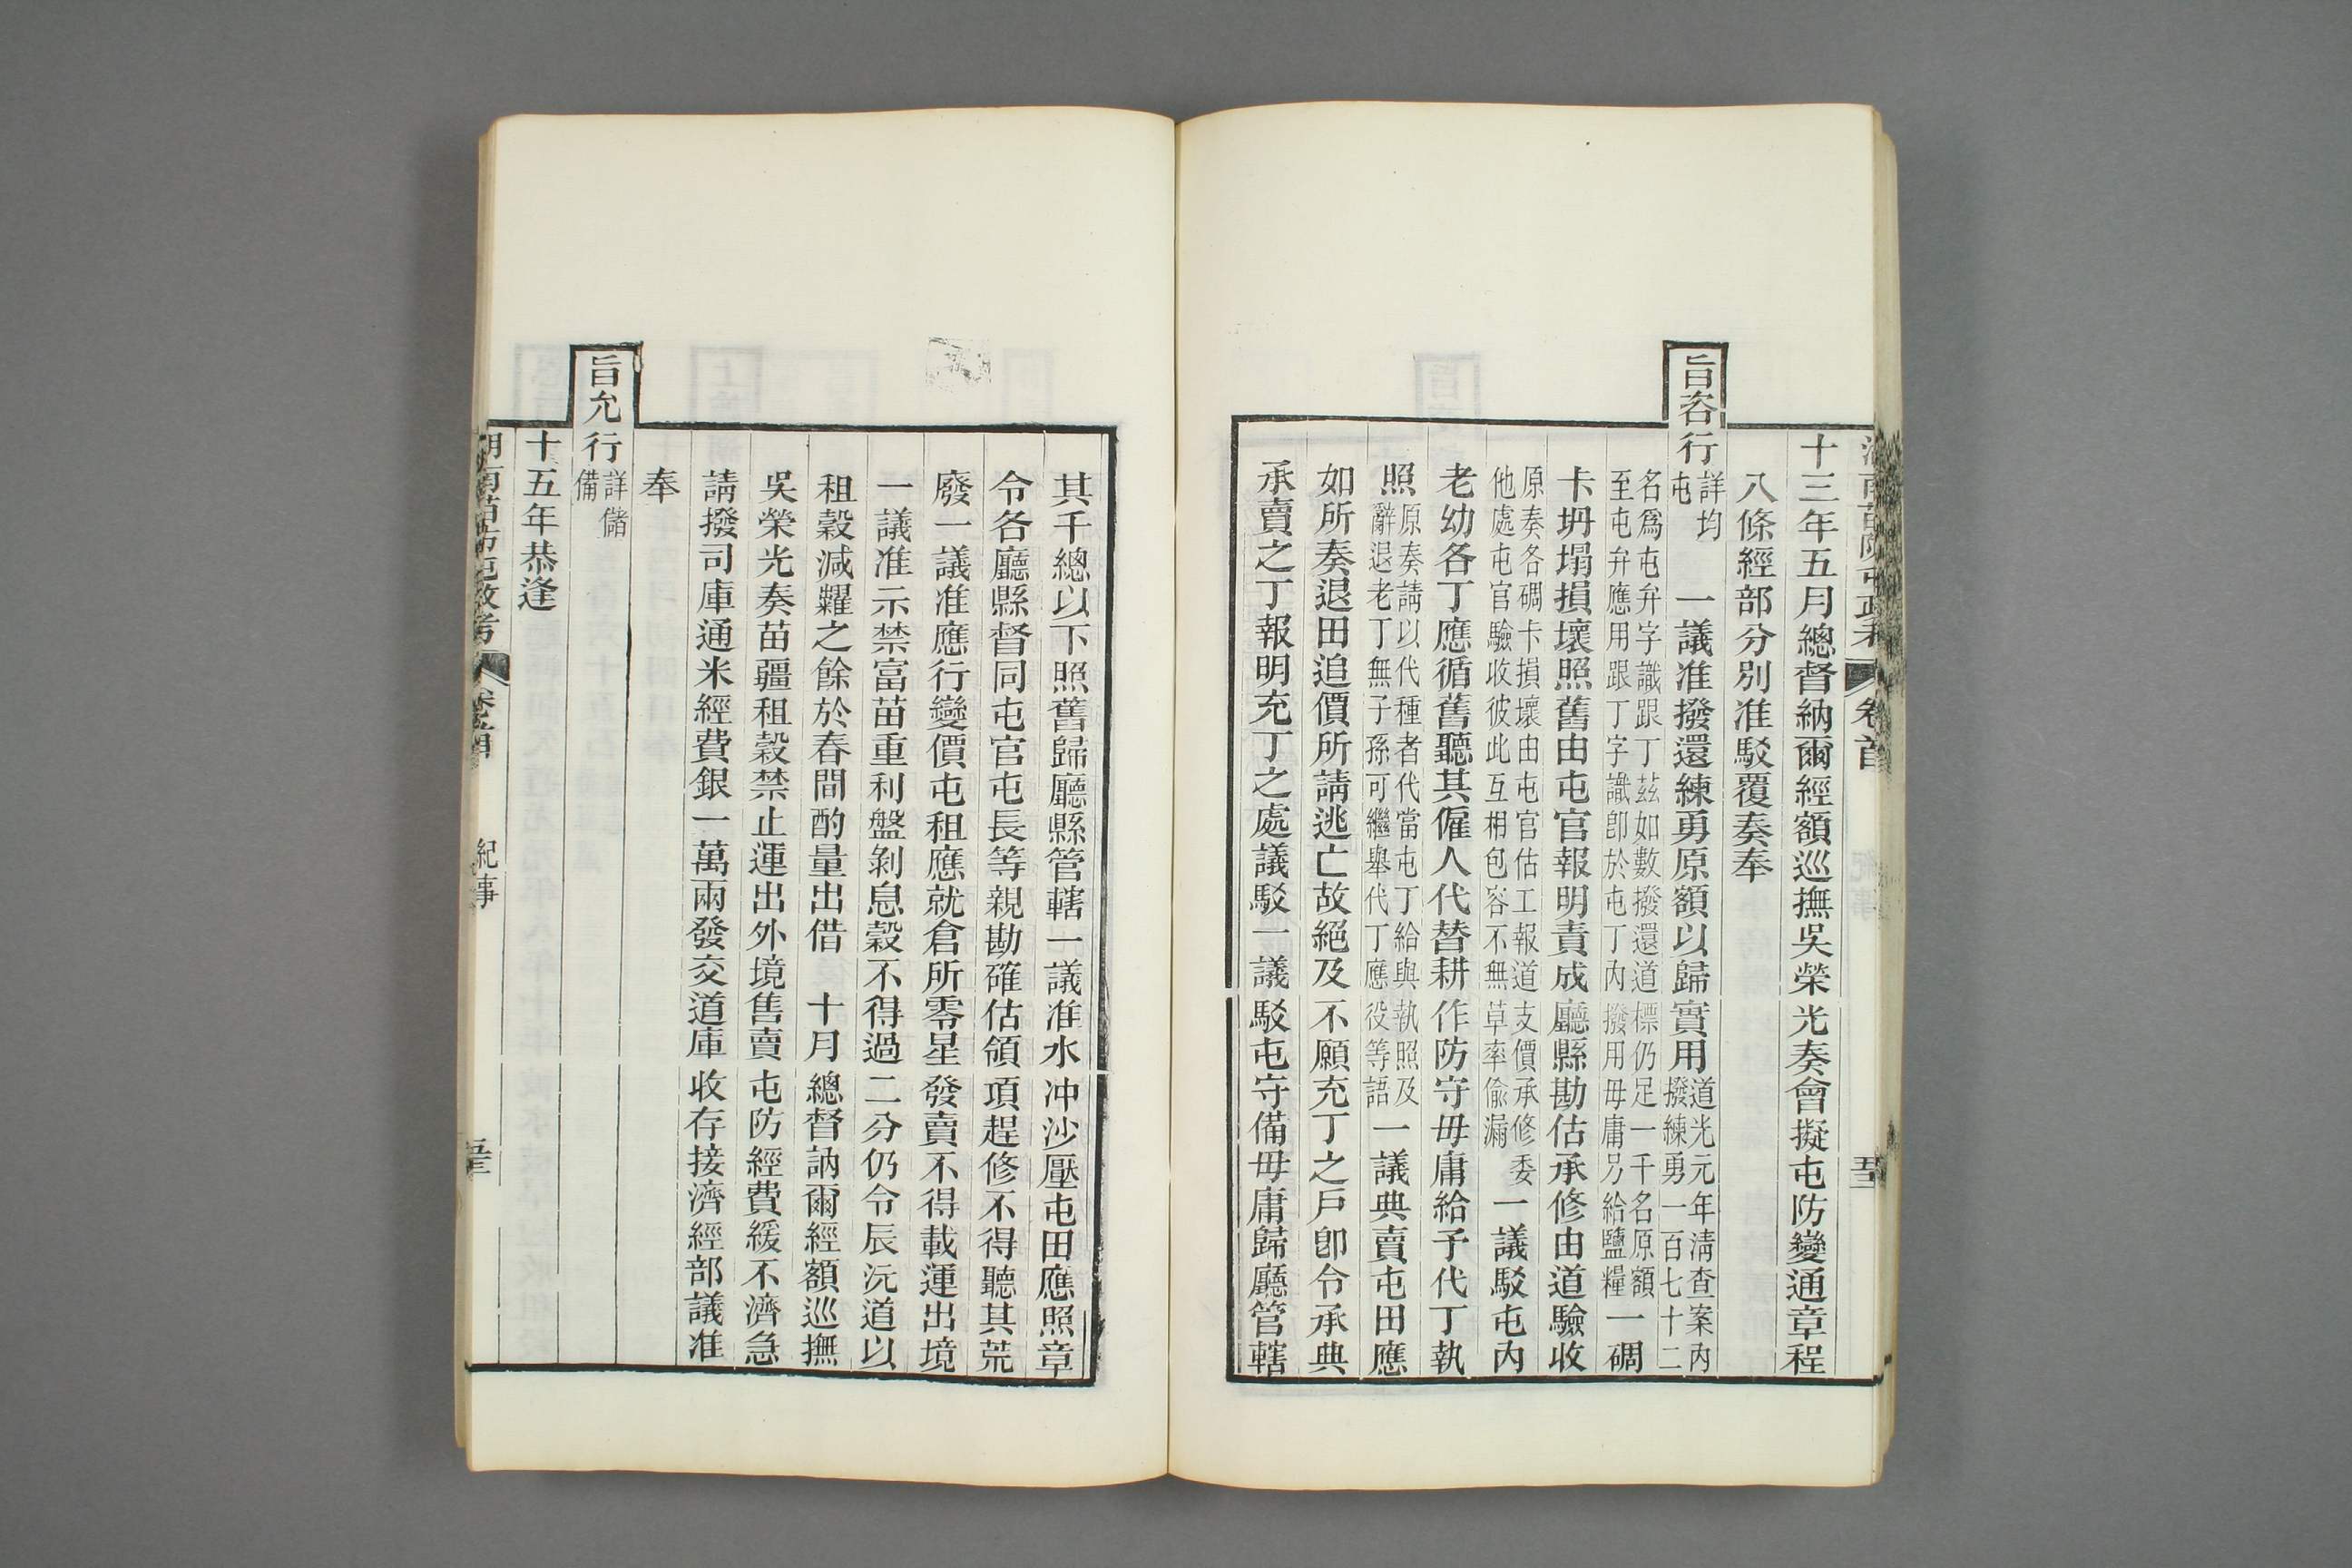 十三年五月總督納爾經額巡撫吳榮光奏會擬屯防變通章程
八條經部分別准駁覆奏奉
旨咨行詳均屯 一議准撥還練勇原額以歸實用道光元年淸查案內撥練勇一百七十二
名爲屯弁字識跟丁茲如數撥還道標仍足一千名原額至屯弁應用跟丁字識卽於屯丁內撥用毋庸另給鹽糧一碉
卡坍塌損壞照舊由屯官報明責成廳縣勘估承修由道驗收
原奏各碉卡損壞由屯官估工報道支價承修委他處屯官驗收彼此互相包容不無草率偸漏一議駁屯內
老幼各丁應循舊聽其僱人代替耕作防守毋庸給予代丁執
照原奏請以代種者代當屯丁給與執照及辭退老丁無子孫可繼舉代丁應役等語一議典賣屯田應
如所奏退田追價所請逃亡故絕及不願充丁之戶卽令承典
承賣之丁報明充丁之處議駁一議駁屯守備毋庸歸廳管轄
其千總以下照舊歸廳縣管轄一議准水冲沙壓屯田應照章
令各廳縣督同屯官屯長等親勘確估領項趕修不得聽其荒
廢一議准應行變價屯租應就倉所零星發賣不得載運出境
一議准示禁富苗重利盤剝息穀不得過二分仍令辰沅道以
租穀減糶之餘於春間酌量出借 十月總督訥爾經額巡撫
吳榮光奏苗疆租穀禁止運出外境售賣屯防經費緩不濟急
請撥司庫通米經費銀一萬兩發交道庫收存接濟經部議准
奉
旨允行詳儲備
十五年恭逢
湖南苗防屯政考 卷首 紀事